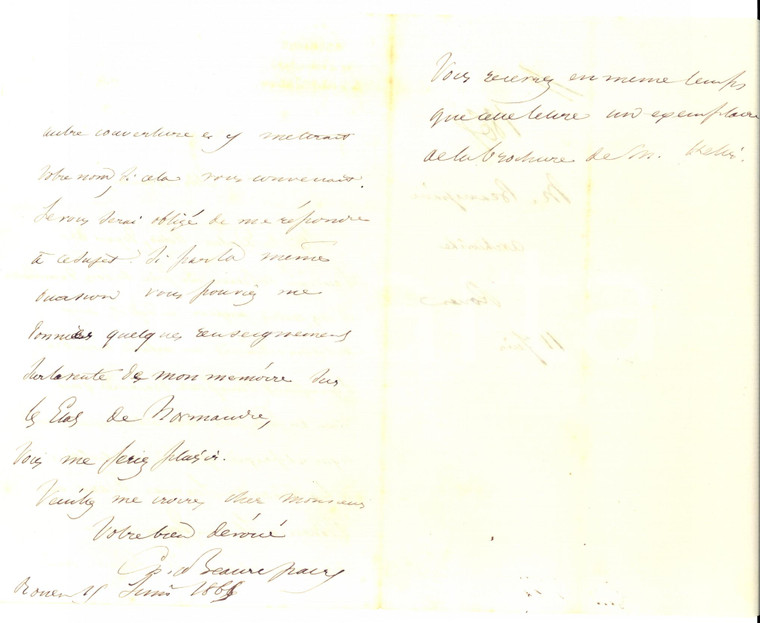 autre couverture et y mettrait
votre nom, si cela vous convenait.
Je vous serai obligé de me répondre
à ce sujet. Si par la même
occasion vous pouviez me
donner quelques renseignements
sur la suite de mon mémoire sur
les Etats de Normandie,
Vous me feriez plaisir.
Veuillez me croire, cher monsieur
Votre bien dévoué
Ch. de Beaurepaire
Rouen Juin
Vous recevrez en même temps
que cette lettre un exemplaire
de la brochure de M.